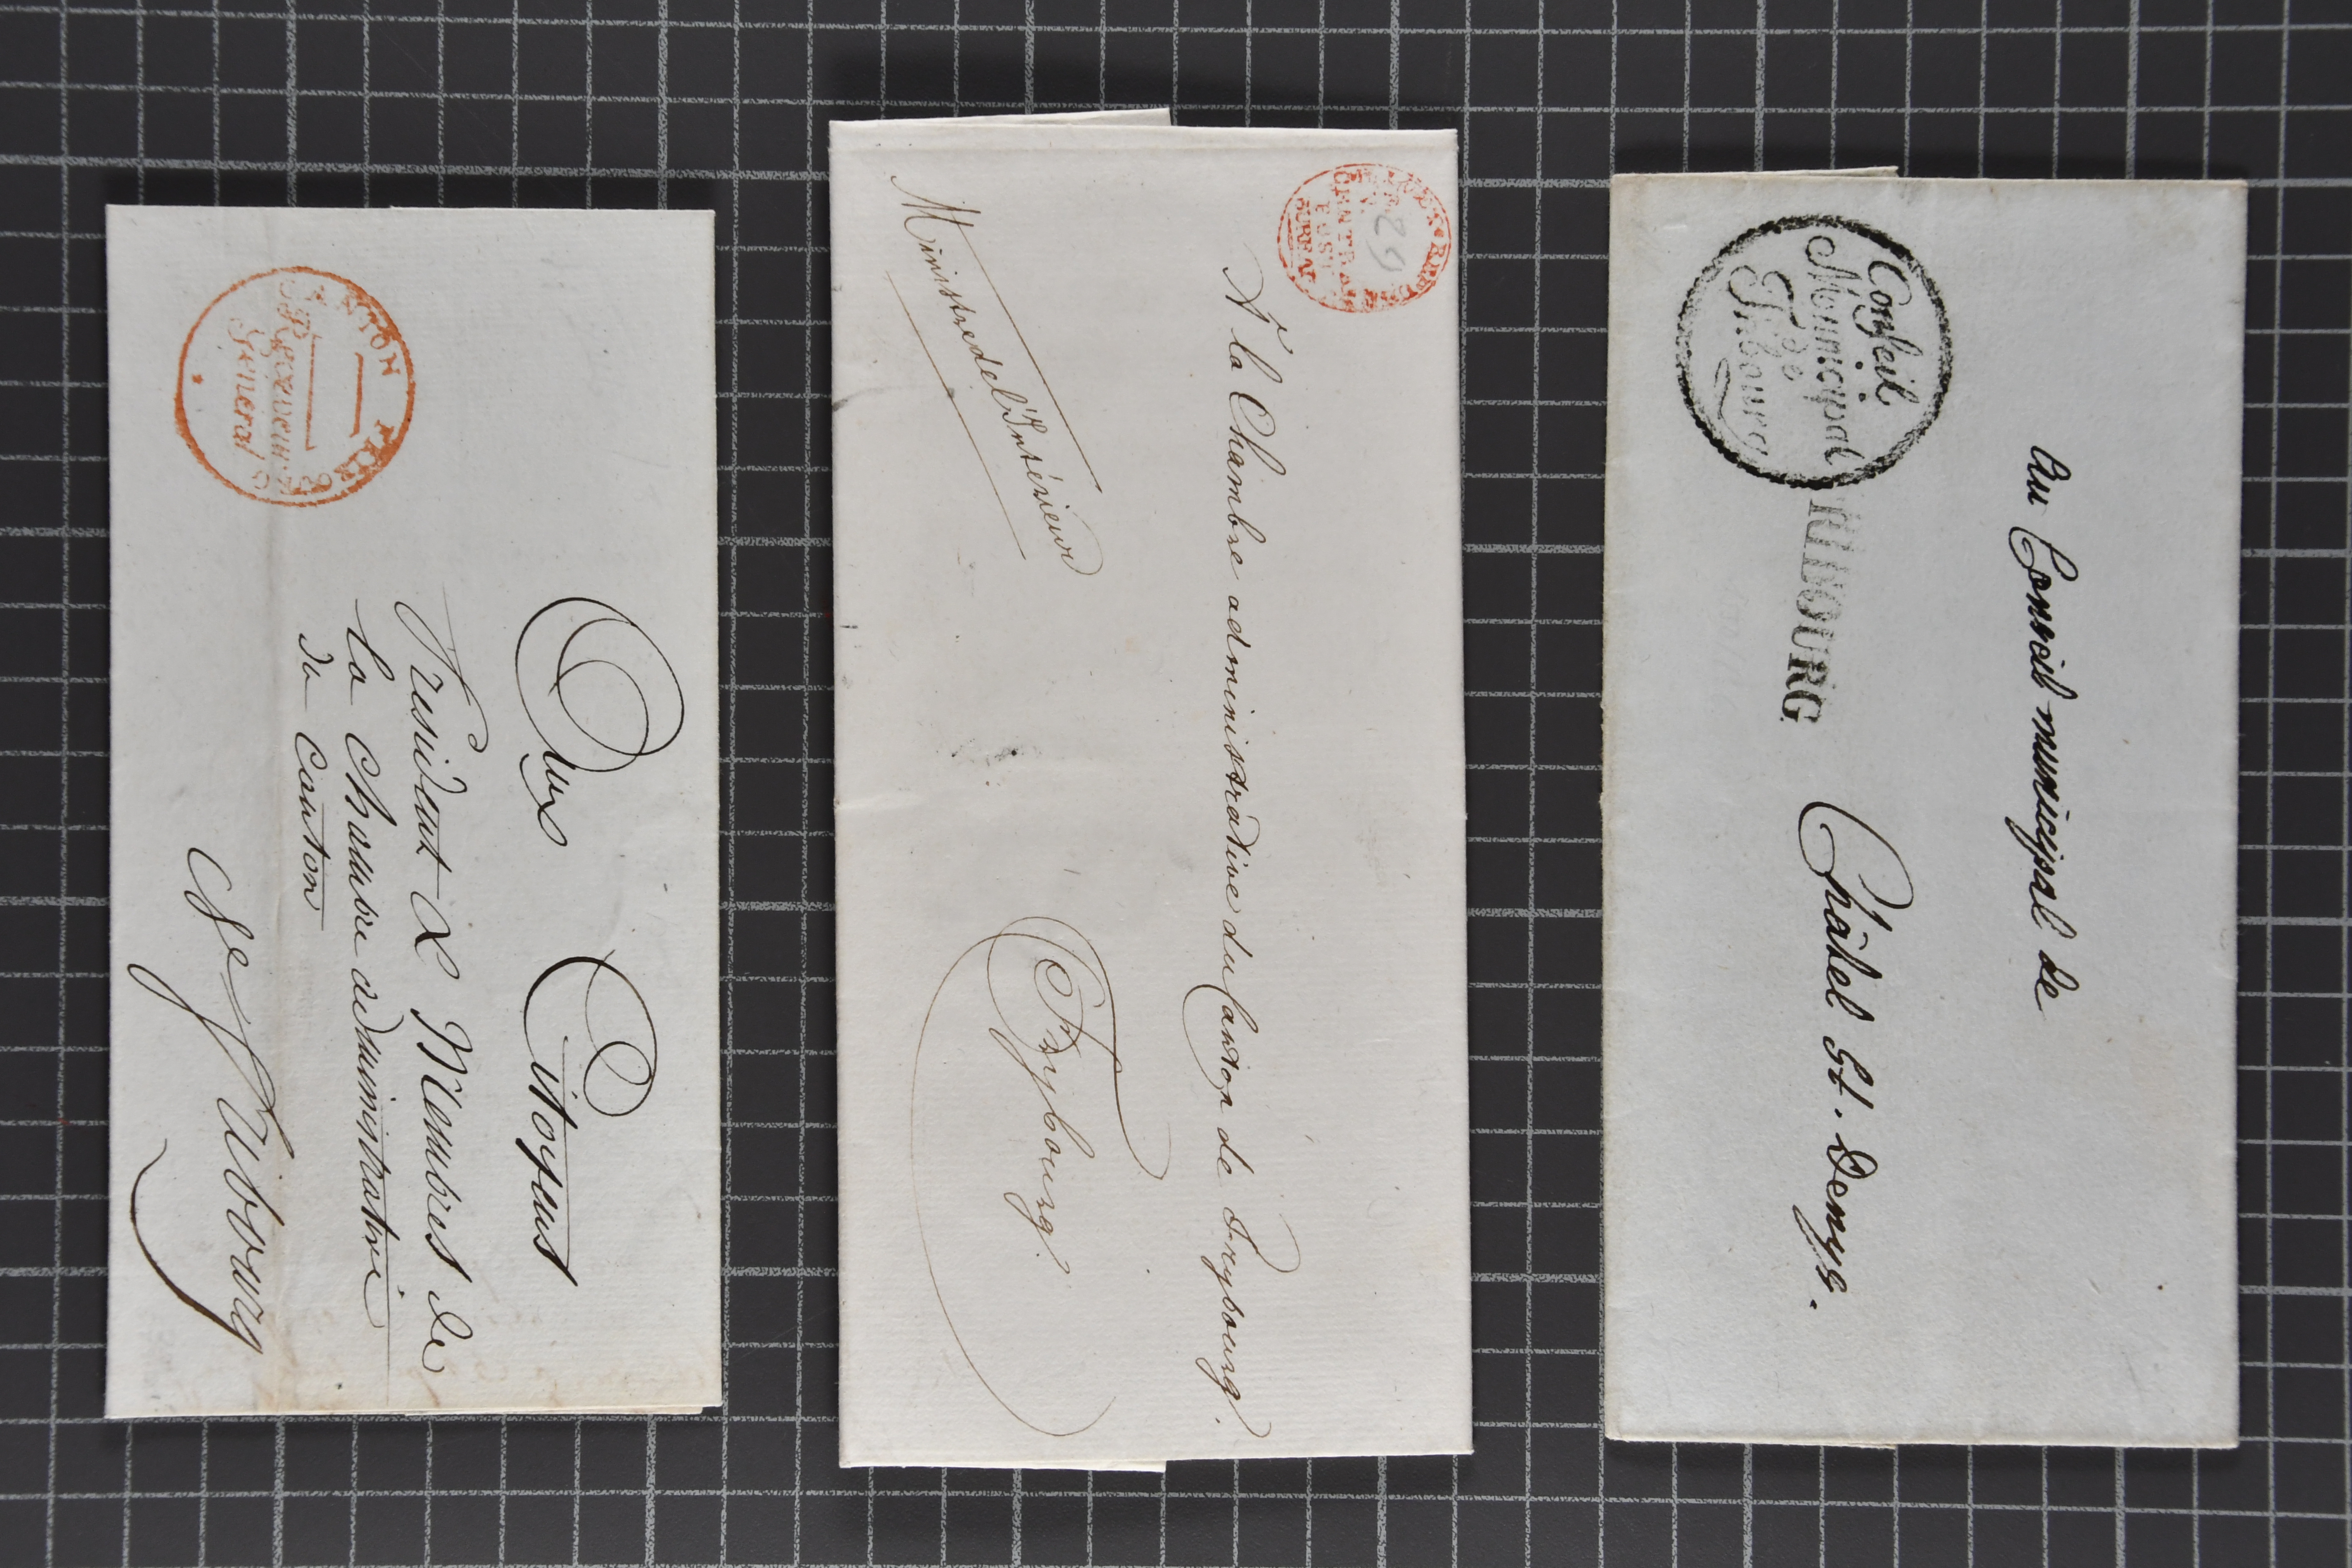 CANTON FRIBOURG
Receveur
Général
Aux Citoyens
President & Membres de
la Chambre administrative
du Canton
à Fribourg
BUREAU
CENTRAL
29
Ministre de l'Intérieur
À la Chambre administrative du Canton de Freybourg.
Freybourg.
Conseil
Municipal
de
Fribourg
FRIBOURG
Au Conseil municipal de
Châtel St. Denys.